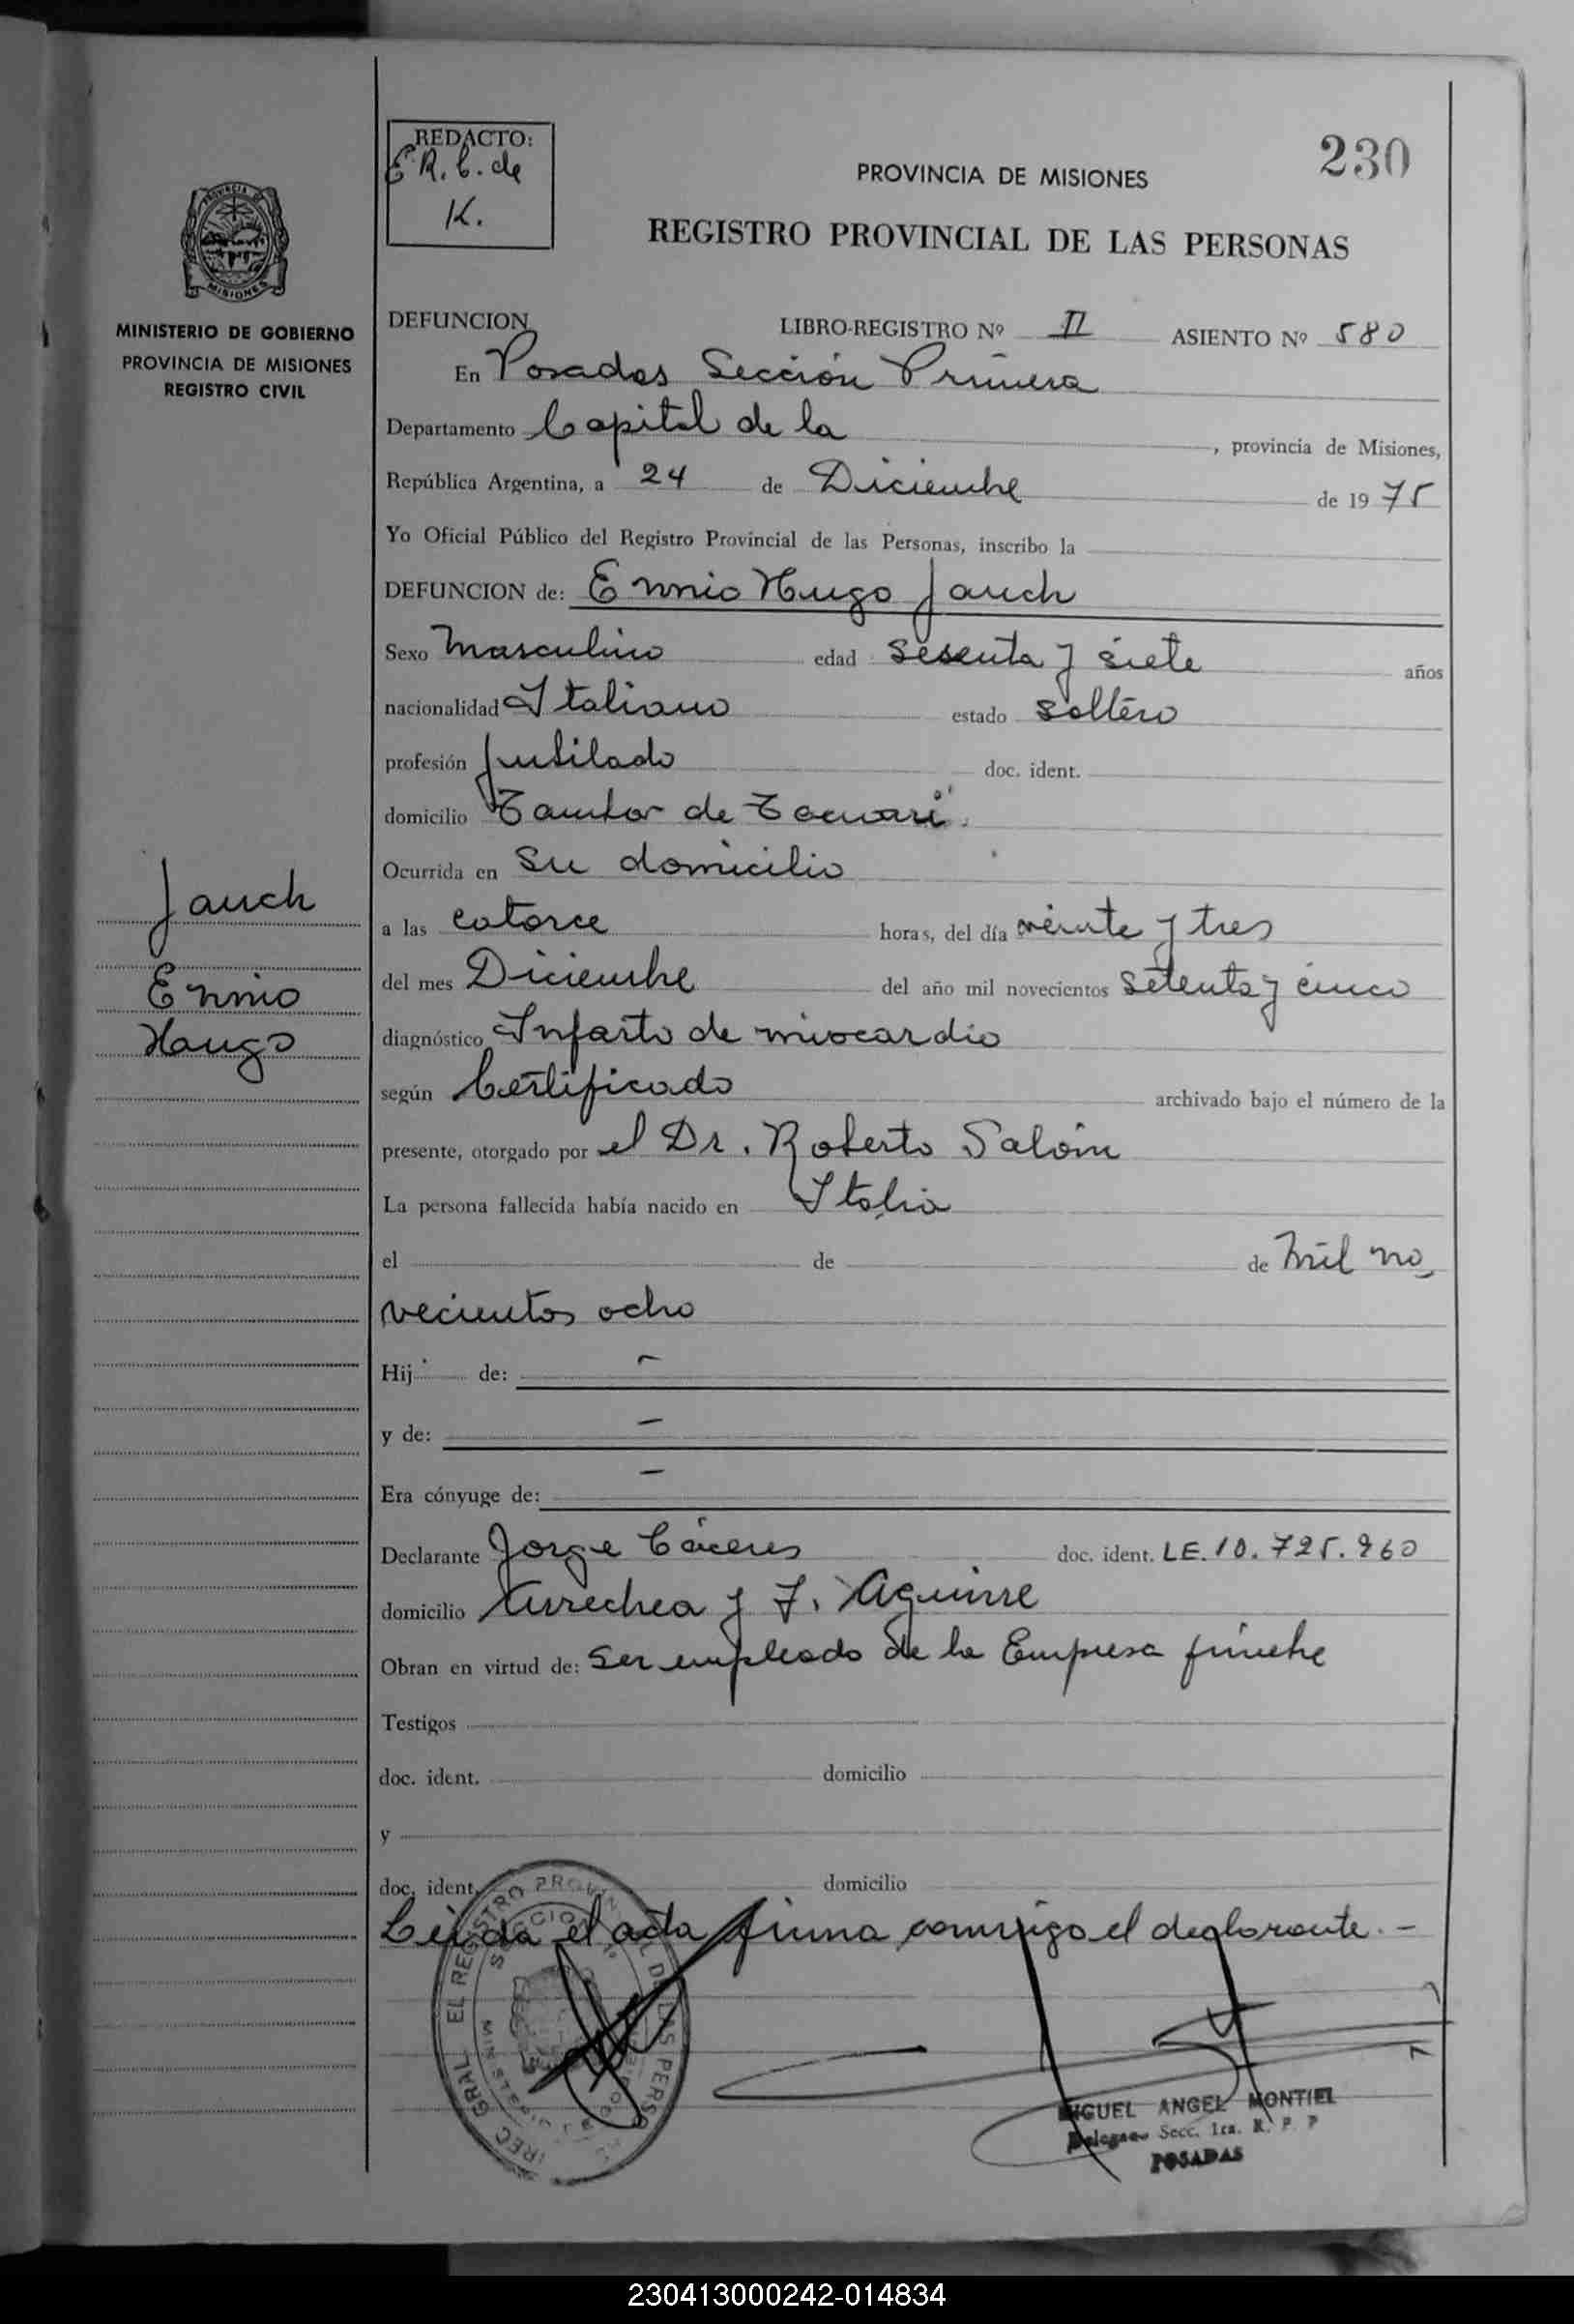 230
REDACTO:
E R. C. de
K.
PROVINCIA DE MISIONES
REGISTRO PROVINCIAL DE LAS PERSONAS
MINISTERIO DE GOBIERNO
PROVINCIA DE MISIONES
REGISTRO CIVIL
DEFUNCION LIBRO-REGISTRO Nº II ASIENTO Nº 580
En Posadas Sección Primera
Departamento Capital de la , provincia de Misiones,
República Argentina, a 24 de Diciembre de 1975
Yo Oficial Público del Registro Provincial de las Personas, inscribo la
DEFUNCION de: Ennio Hugo Jauch
Sexo Masculino edad sesenta y siete años
nacionalidad Italiano estado soltero
profesión Jubilado doc. ident.
domicilio Tambor de Tacuarí.
Ocurrida en su domicilio
Jauch
Ennio
Hugo
a las catorce horas, del día veinte y tres
del mes Diciembre del año mil novecientos setenta y cinco
diagnóstico Infarto de miocardio
según Certificado archivado bajo el número de la
presente, otorgado por el Dr. Roberto Salom
La persona fallecida había nacido en Italia
el de de mil no
vecientos ocho
Hij de: -
y de: -
Era cónyuge de: -
Declarante Jorge Cáceres doc. ident. LE. 10.725.960
domicilio Aurechea y J. Aguirre
Obran en virtud de: ser empleado de la Empresa fúnebre
Testigos
doc. ident. domicilio
y
doc. ident. domicilio
Leída el acta firma conmigo el declarante. -
MIGUEL ANGEL MONTIEL
Secc. 1ra. R. P. P
POSADAS
230413000242-014834